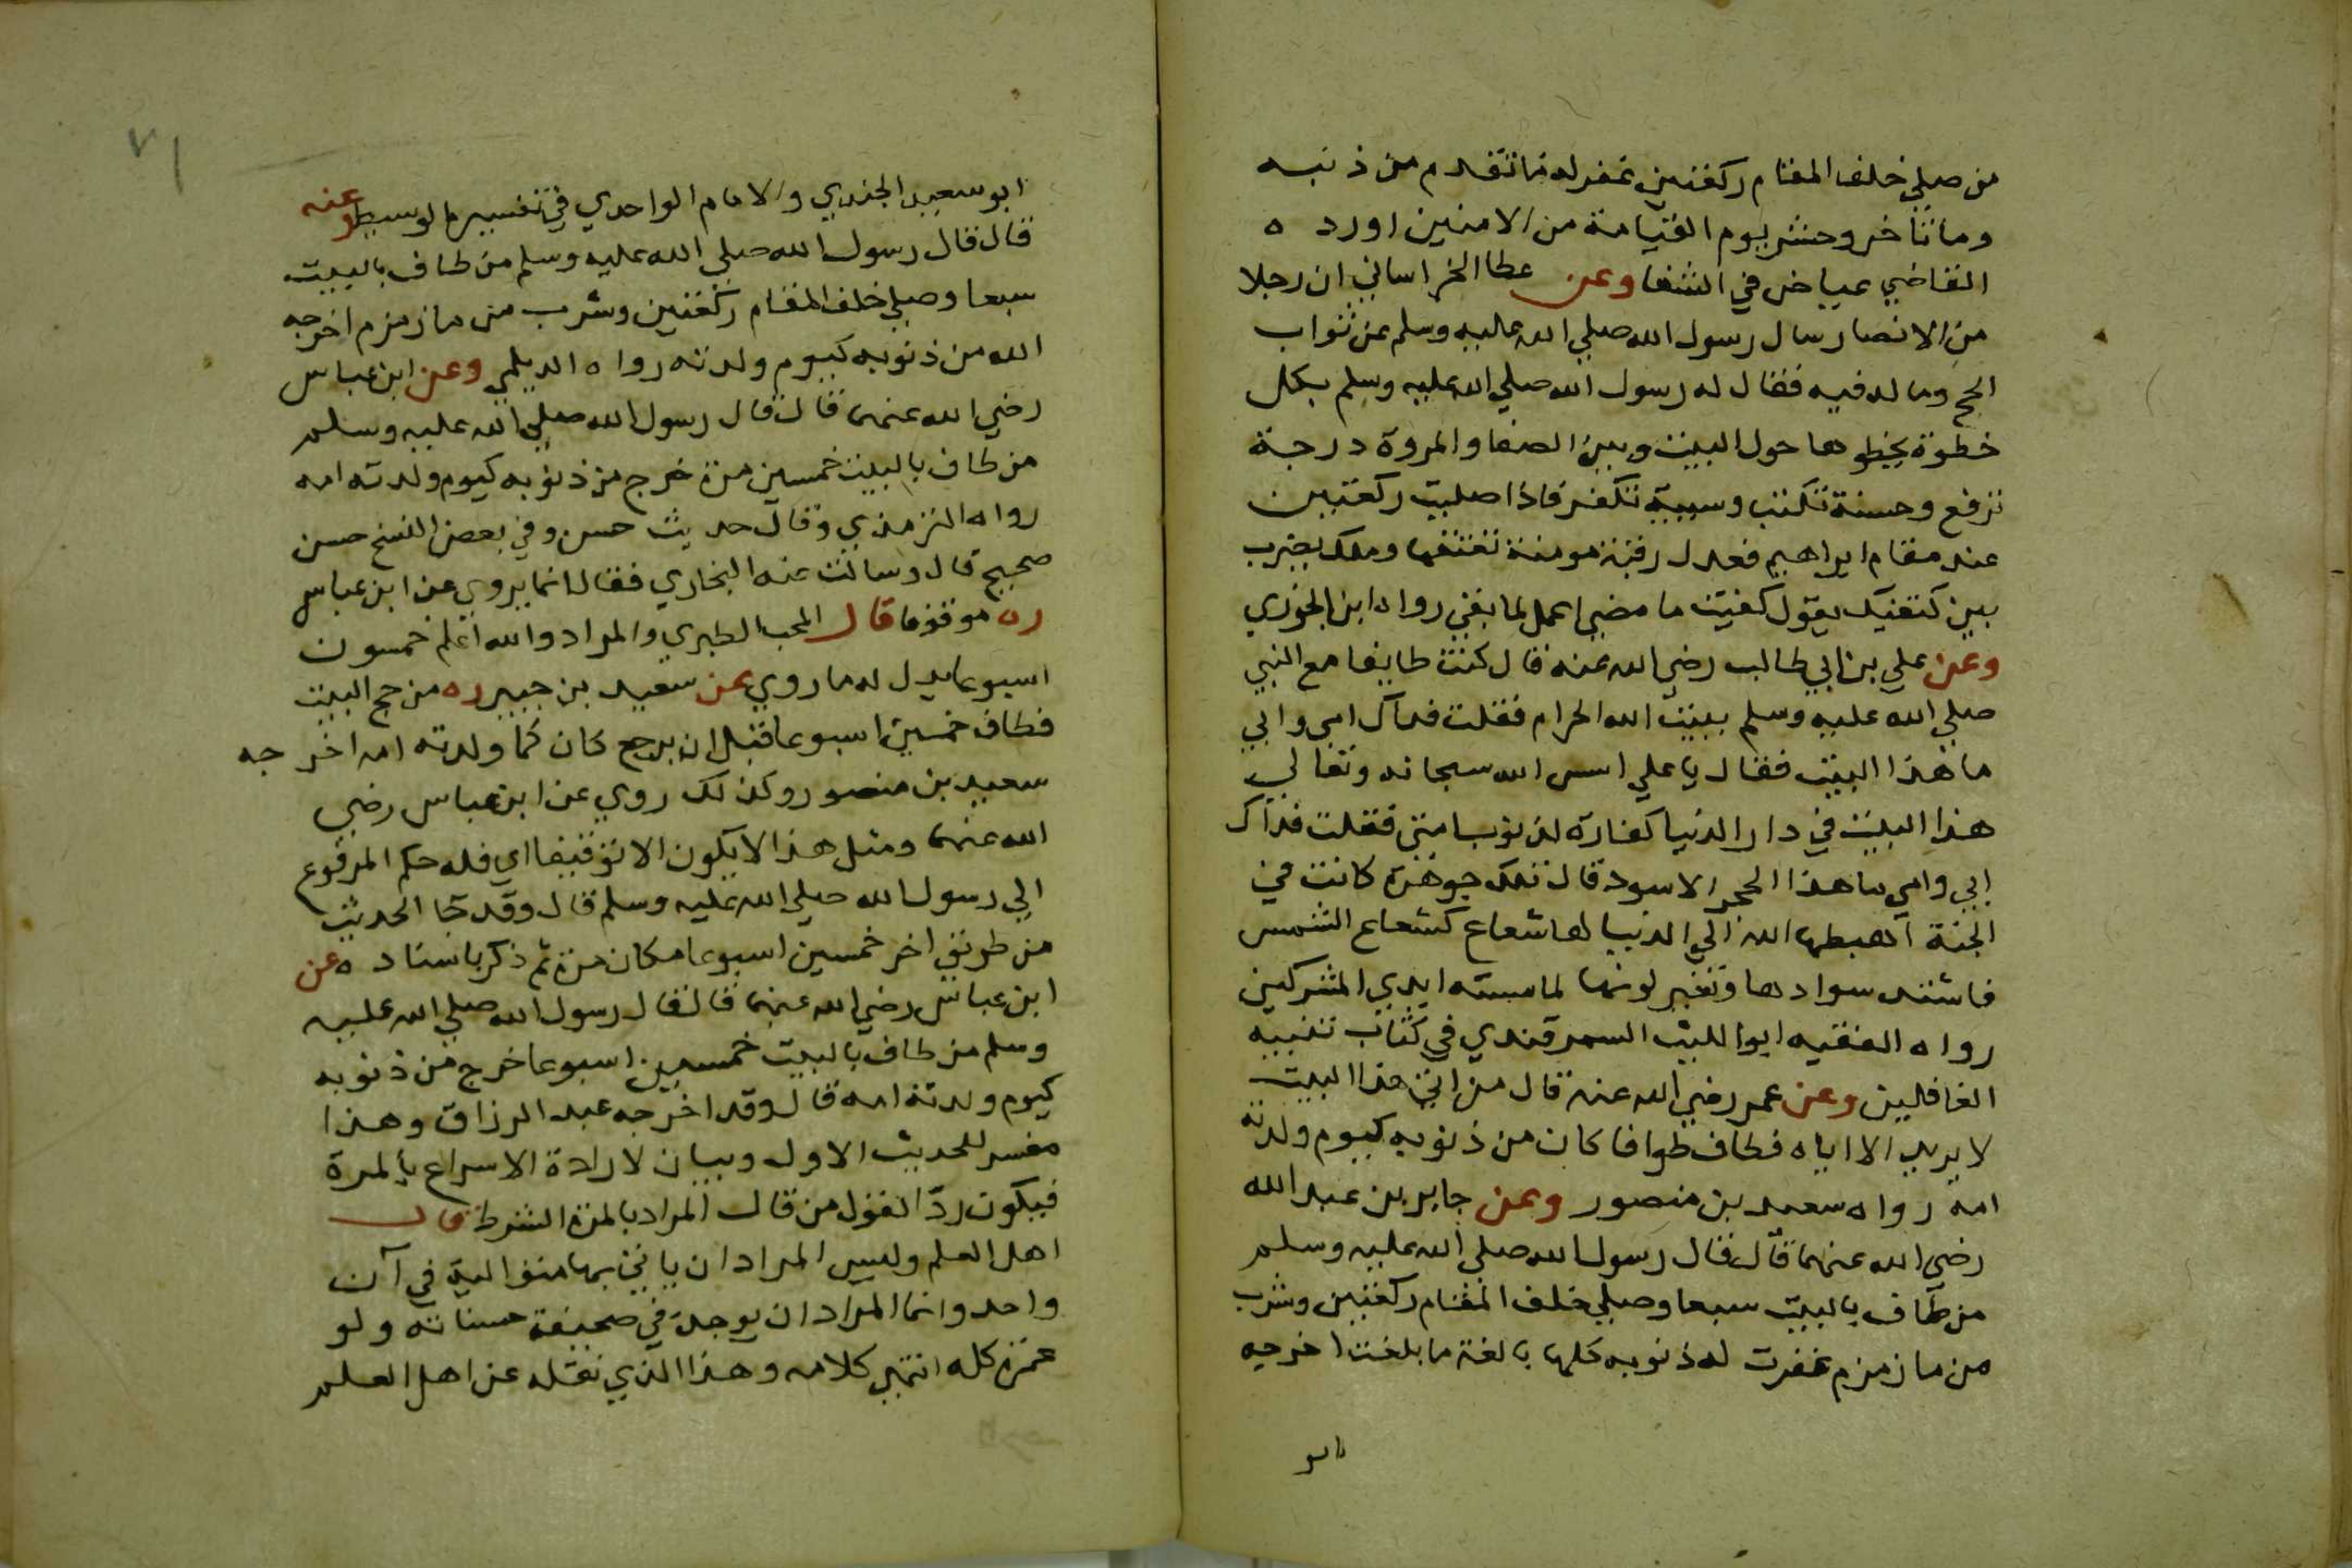 من صلي خلف المقام ركعتين غفر له ما تقدم من ذنبه
وما تاخر وحشر يوم القيامة من الامنين اورده
القاضي عياض في الشفا وعن عطا الخراساني ان رجلا
من الانصار سال رسول الله صلي الله عليه وسلم عن ثواب
الحج وما له فيه فقال له رسول الله صلي الله عليه وسلم بكل
خطوة يخطوها حول البيت وبين الصفا والمروة درجة
ترفع وحسنة تكتب وسيية تكفر فاذا صليت ركعتين
عند مقام ابراهيم فعدل رقبة مومنة تعتقها وملك يضرب
بين كتفيك يقول كفيت ما مضي اعمل لما بقي رواه ابن الجوزي
وعن علي بن ابي طالب رضي الله عنه قال كنت طايفا مع النبي
صلي الله عليه وسلم ببيت الله الحرام فقلت فداك امي وابي
ما هذا البيت فقال يا علي اسس الله سبحانه وتعالي
هذا البيت في دار الدنيا كفارة لذنوب امتي فقلت فداك
ابي وامي ما هذا الحجر الاسود قال تلك جوهرة كانت في
الجنة اهبطها الله الي الدنيا لها شعاع كشعاع الشمس
فاشتد سوادها وتغير لونها لما مسته ايدي المشركين
رواه الفقيه ابو الليث السمرقندي في كتاب تنبيه
الغافلين وعن عمر رضي الله عنه قال من اتي هذا البيت
لا يريد الا اياه فطاف طوافا كان من ذنوبه كيوم ولدته
امه رواه سعيد بن منصور وعن جابر بن عبد الله
رضي الله عنهما قال قال رسول الله صلي الله عليه وسلم
من طاف بالبيت سبعا وصلي خلف المقام ركعتين وشرب
من ما زمزم غفرت له ذنوبه كلها بالغة ما بلغت اخرجه
ابو
٧١
ابو سعيد الجندي والامام الواحدي في تفسيره الوسيط وعنه
قال قال رسول الله صلي الله عليه وسلم من طاف بالبيت
سبعا وصلي خلف المقام ركعتين وشرب من ما زمزم اخرجه
الله من ذنوبه كيوم ولدته رواه الديلمي وعن ابن عباس
رضي الله عنهما قال قال رسول الله صلي الله عليه وسلم
من طاف بالبيت خمسين مرة خرج من ذنوبه كيوم ولدته امه
رواه الترمذي وقال حديث حسن وفي بعض النسخ حسن
صحيح قال وسالت عنه البخاري فقال انما يروي عن ابن عباس
ره موقوفا قال المحب الطبري والمراد والله اعلم خمسون
اسبوعا يدل له ما روي عن سعيد بن جبير ره من حج البيت
فطاف خمسين اسبوعا قبل ان يرجع كان كما ولدته امه اخرجه
سعيد بن منصور وكذلك روي عن ابن عباس رضي
الله عنهما ومثل هذا لا يكون الا توقيفا اي فله حكم المرفوع
الي رسول الله صلي الله عليه وسلم قال وقد جا الحديث
من طريق اخر خمسين اسبوعا مكان مرة ثم ذكر باسناده عن
ابن عباس رضي الله عنهما قال قال رسول الله صلي الله عليه
وسلم من طاف بالبيت خمسين اسبوعا خرج من ذنوبه
كيوم ولدته امه قال وقد اخرجه عبد الرزاق وهذا
مفسر للحديث الاول وبيان لارادة الاسراع بالمرة
فيكون ردّ القول من قال المراد بالمرة الشرط قال
اهل العلم وليس المراد ان ياتي بها متوالية في آن
واحد وانما المراد ان يوجد في صحيفة حسناته ولو
عمره كله انتهي كلامه وهذا الذي نقله عن اهل العلم